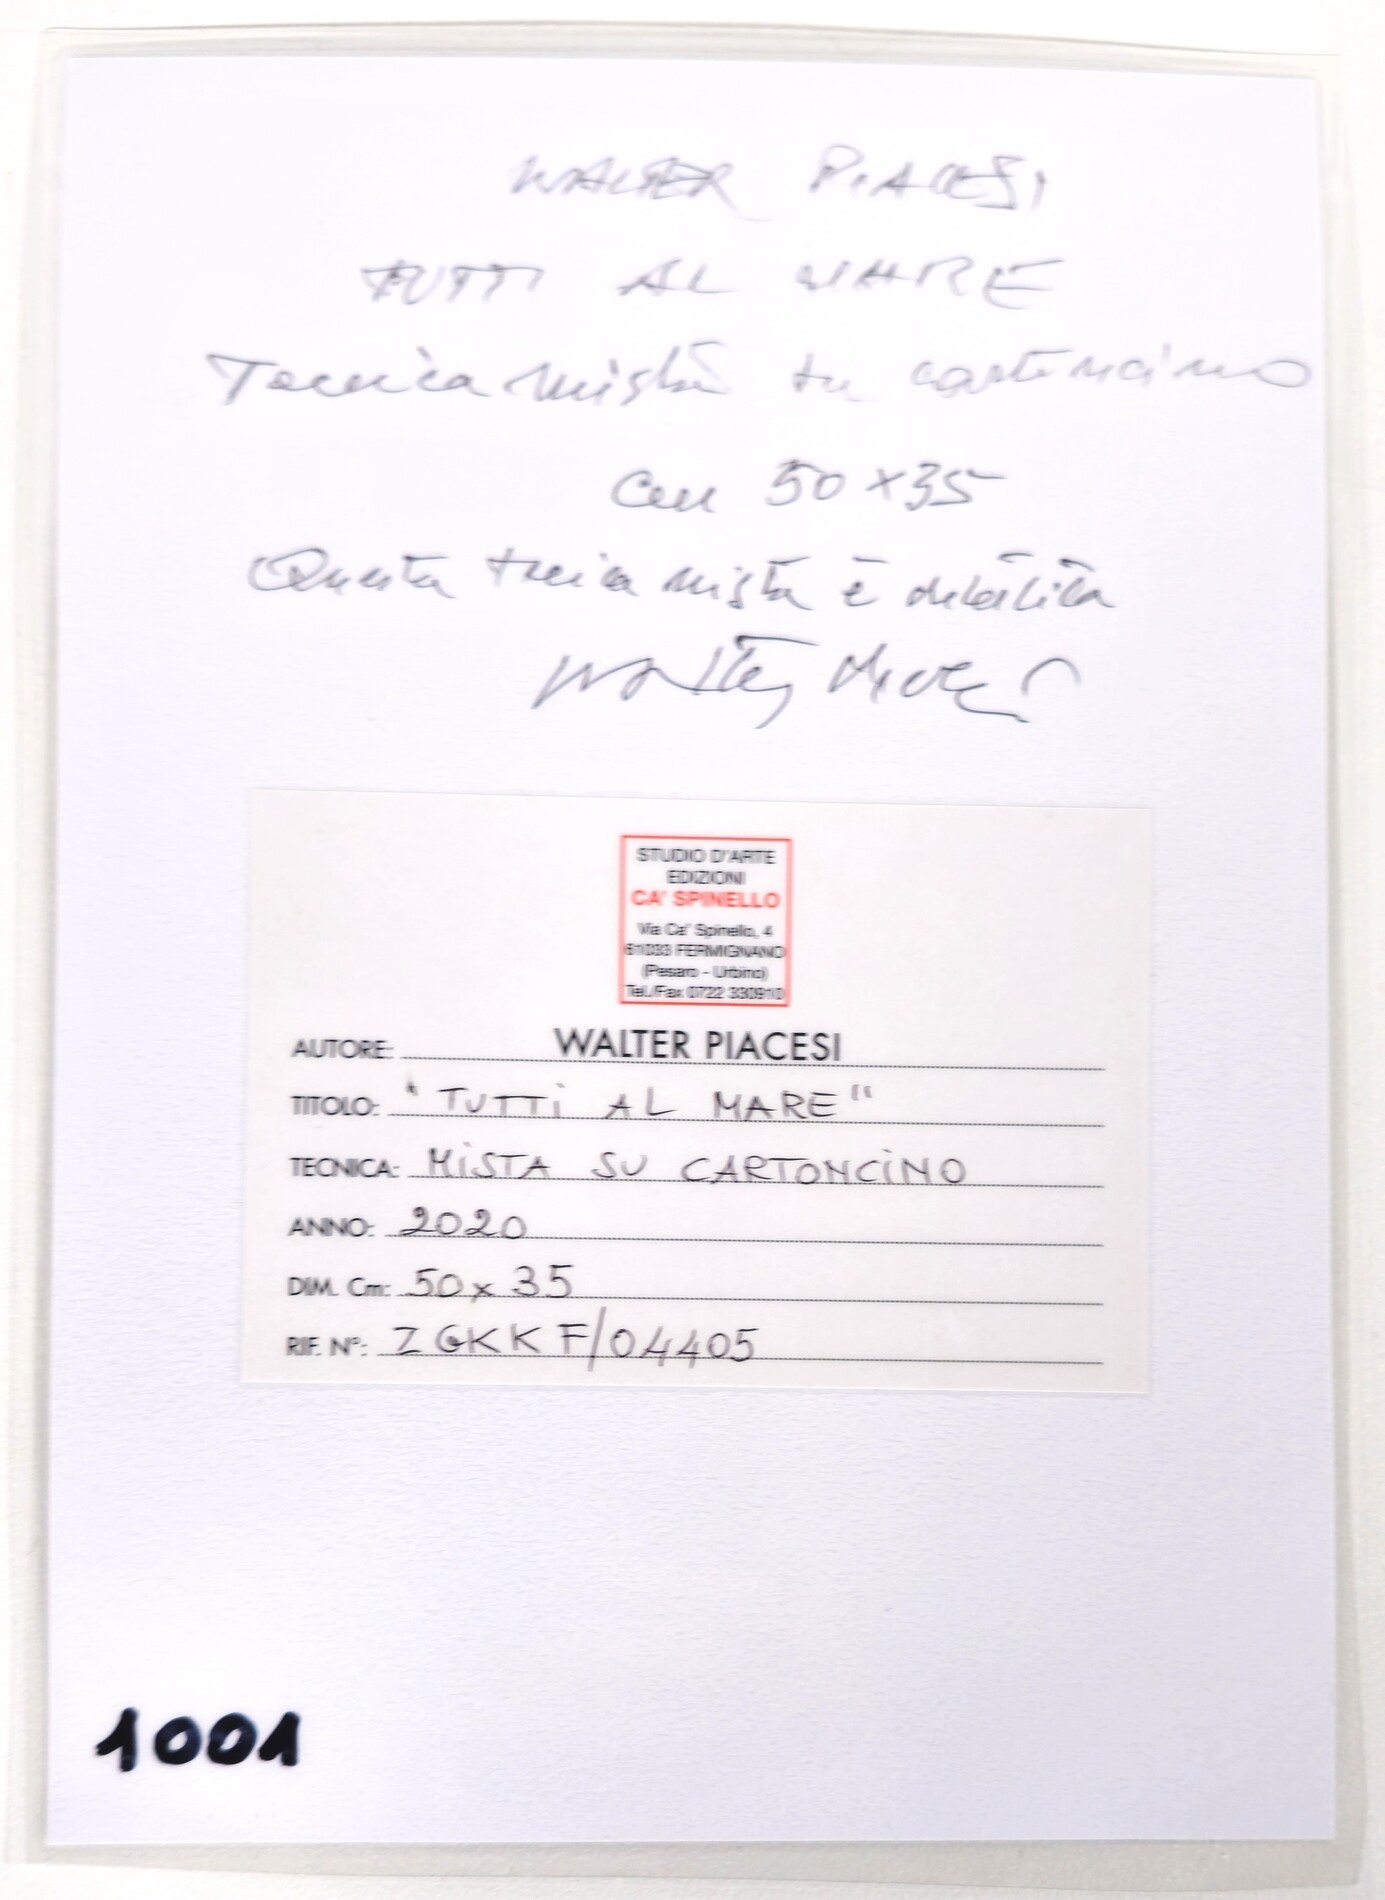 WALTER PIACESI
TUTTI AL MARE
Tecnica mista su cartoncino
cm 50 x 35
Questa mista è
Walter
STUDIO D'ARTE
EDIZIONI
CA' SPINELLO
Via Ca' Spinello, 4
61033 FERMIGNANO
(Pesaro - Urbino)
Tel./Fax 0722 330910
AUTORE: WALTER PIACESI
TITOLO: "TUTTI AL MARE"
TECNICA: MISTA SU CARTONCINO
ANNO: 2020
DIM. Cm: 50 x 35
RIF. N°: ZGKKF/04405
1001